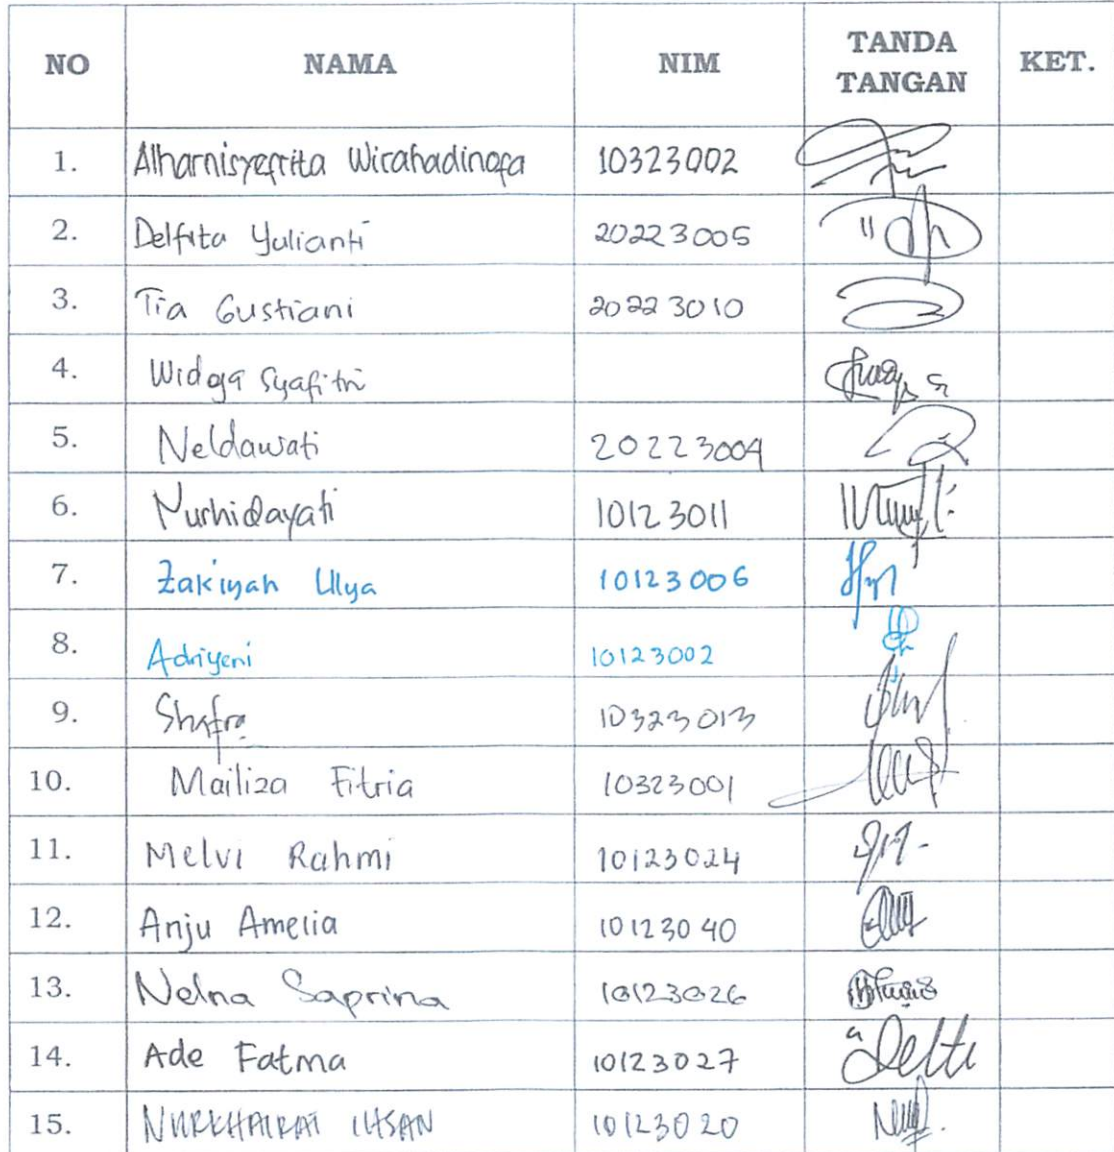 NO NAMA NIM TANDA TANGAN KET.
1. Alharnisyefrita Wirahadinofa 10323002
2. Delfita Yulianti 20223005
3. Tia Gustiani 20223010
4. Widya Syafitri
5. Neldawati 20223004
6. Nurhidayati 10123011
7. Zakiyah Ulya 10123006
8. Adriyeni 10123002
9. Shafra 10323013
10. Mailiza Fitria 10323001
11. Melvi Rahmi 10123024
12. Anju Amelia 10123040
13. Nelna Saprina 10123026
14. Ade Fatma 10123027
15. NURKHAIRAT IHSAN 10123020